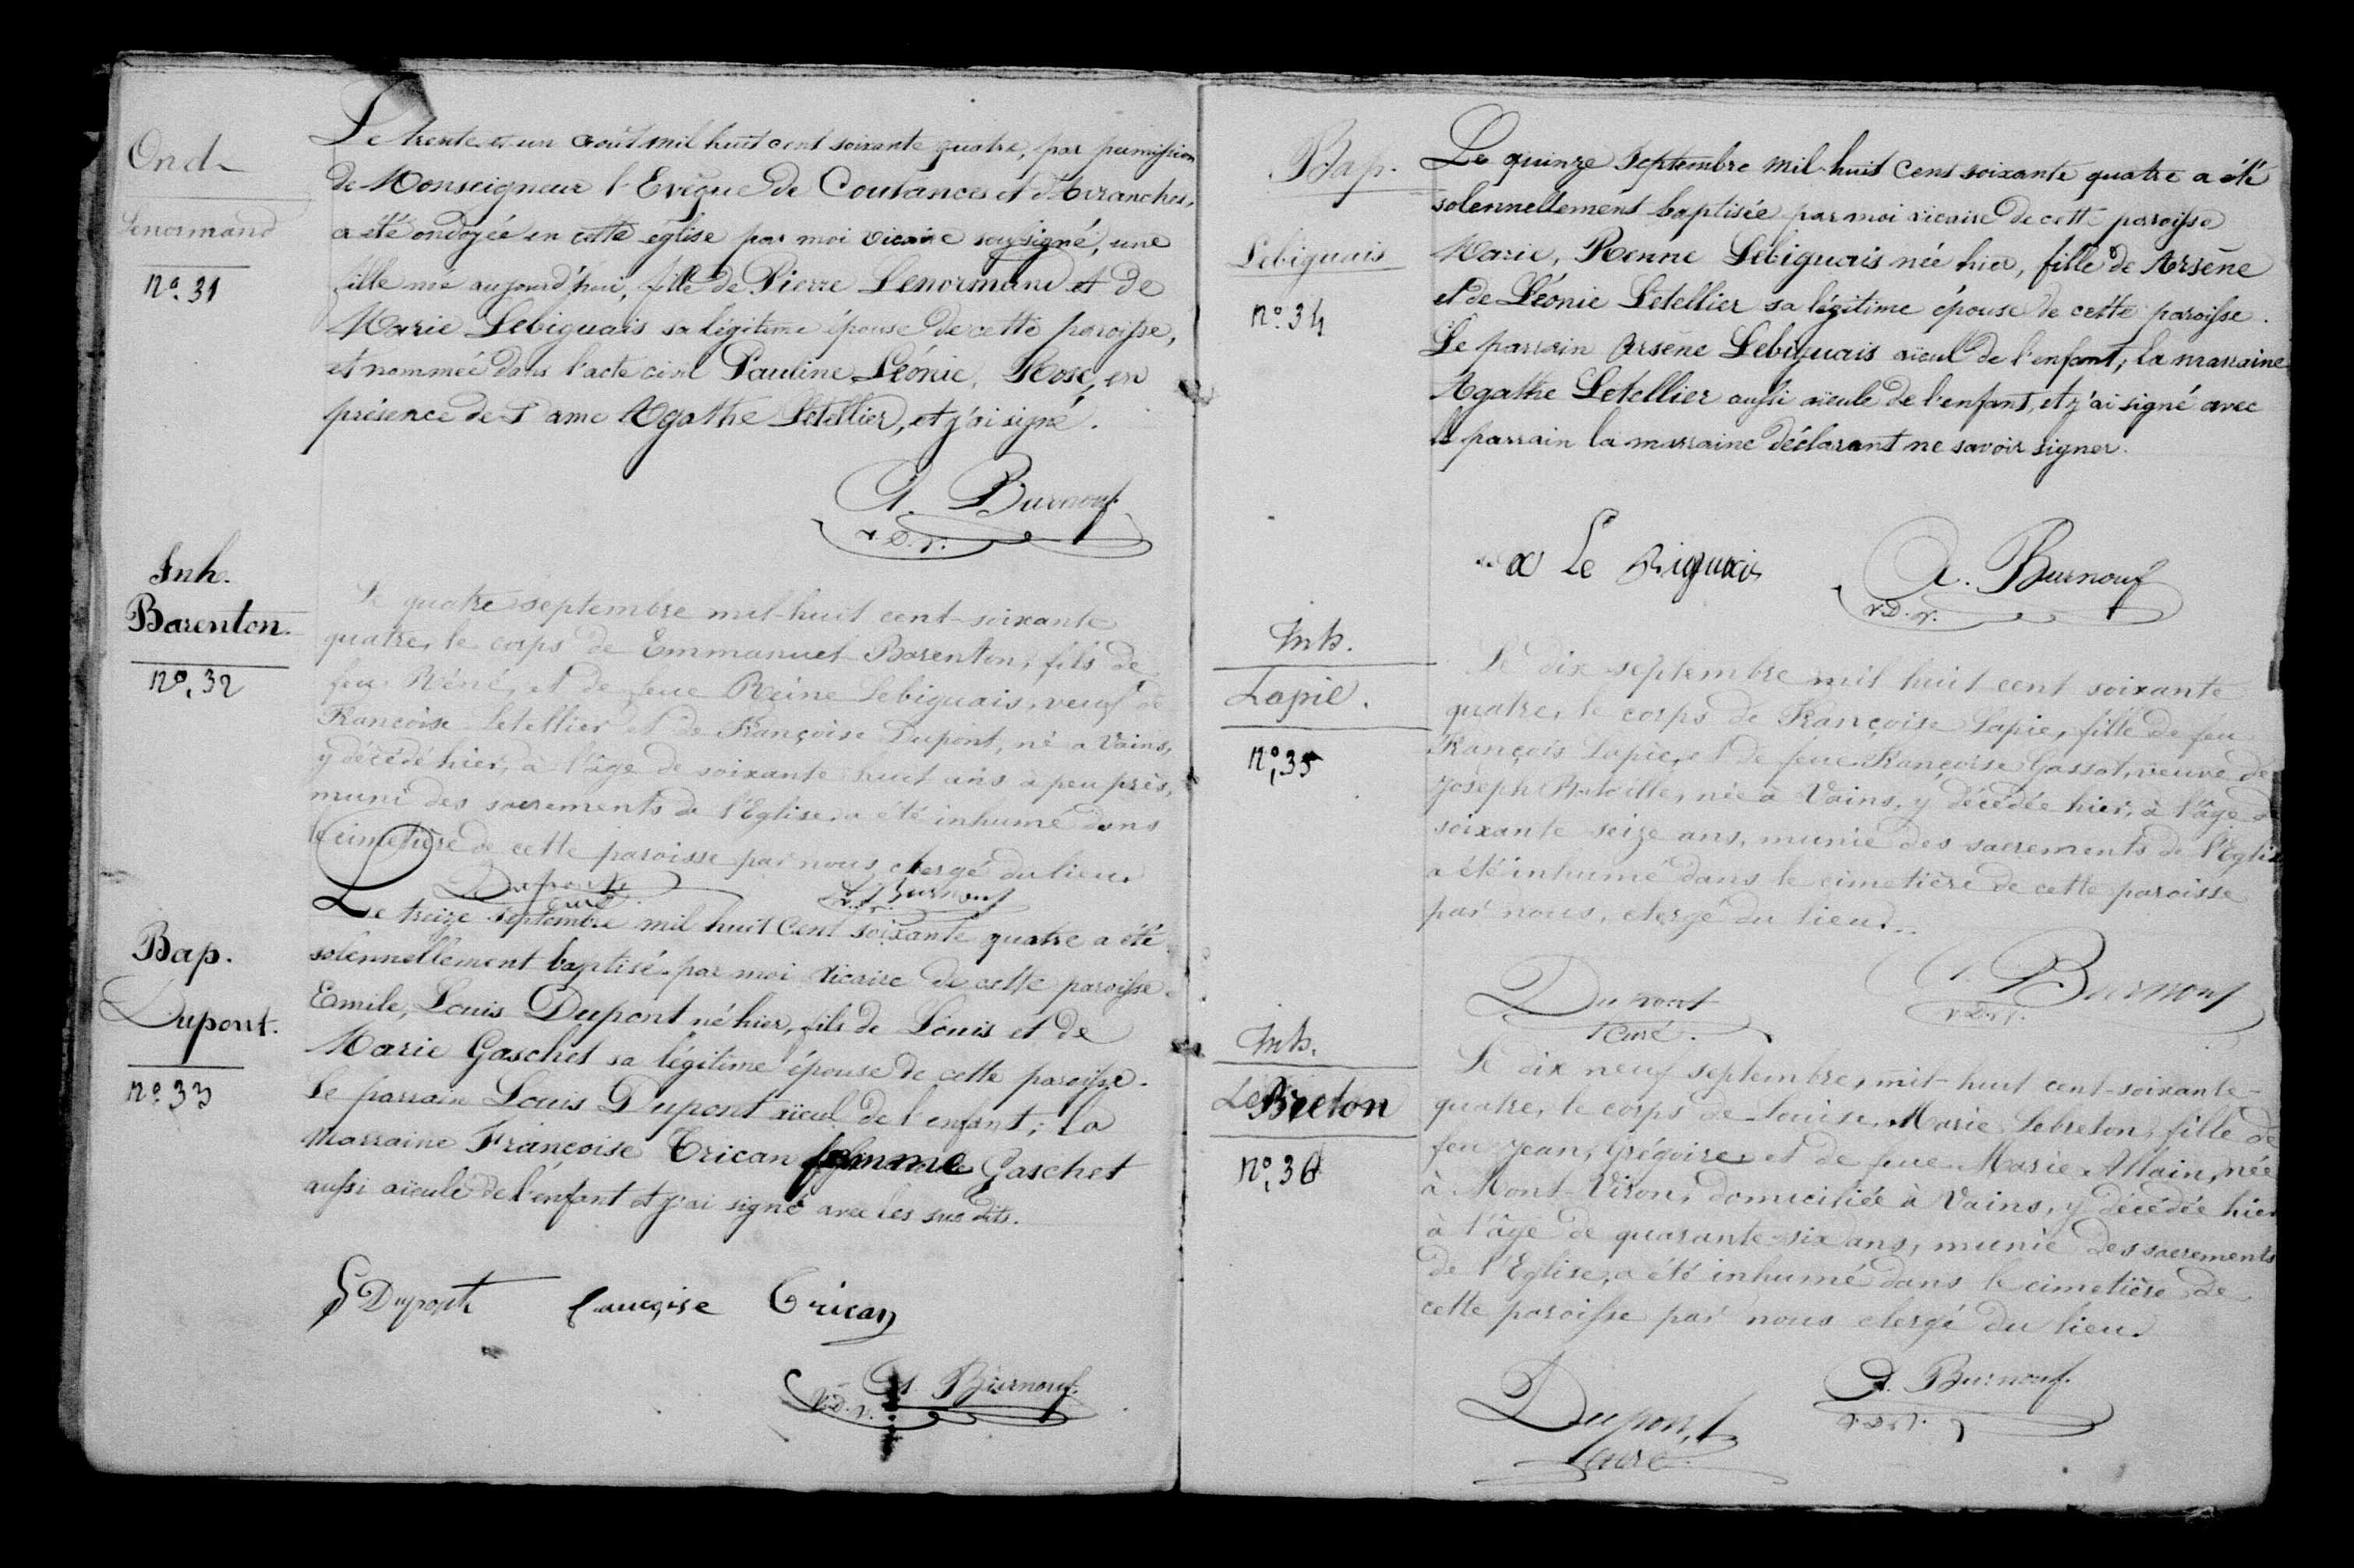 Ond
Lenormand
nº. 31
Le trente et un août mil huit cent soixante quatre, par permission
de Monseigneur l'Evêque de Coutances et d'Avranches,
a été ondoyée en cette église par moi vicaire soussigné, une
fille née aujourd'hui, fille de Pierre Lenormand et de
Marie Lebiguais sa légitime épouse de cette paroisse,
et nommée dans l'acte civil Pauline, Léonie, Rose, en
présence de Dame Agathe Letellier, et j'ai signé.
A. Burnouf
v.D.v.
Inh.
Barenton.
nº. 32
Le quatre septembre mil-huit cent-soixante
quatre, le corps de Emmanuel Barenton, fils de
feu Réné, et de feue Reine Lebiguais, veuf de
Françoise Letellier et de Françoise Dupont, né à Vains,
y décédé hier, à l'âge de soixante huit ans à peu près,
muni des sacrements de l'Eglise, a été inhumé dans
le cimetière de cette paroisse par nous, clergé du lieu.
Dupont
curé.
A. Burnouf
v.D.v.
Bap.
Dupont.
nº. 33
Le treize septembre mil huit cent soixante quatre a été
solennellement baptisé par moi vicaire de cette paroisse
Emile, Louis Dupont né hier, fils de Louis et de
Marie Gaschet sa légitime épouse de cette paroisse.
Le parrain Louis Dupont aïeul de l'enfant; la
marraine Françoise Trican femme Gaschet
aussi aïeule de l'enfant et j'ai signé avec les sus dits.
Dupont francoise Trican
A. Burnouf.
v.D.v.
Bap.
Lebiguais
nº. 34
Le quinze septembre mil-huit cent soixante quatre a été
solennellement baptisée par moi vicaire de cette paroisse
Marie, Renne Lebiguais née hier, fille de Arsène
et de Léonie Letellier sa légitime épouse de cette paroisse.
Le parrain Arsène Lebiguais aïeul de l'enfant; la marraine
Agathe Letellier aussi aïeule de l'enfant, et j'ai signé avec
le parrain la marraine déclarant ne savoir signer.
a Le Biguais
A. Burnouf
v.D.v.
Inh.
Lapie.
nº. 35
Le dix septembre mil huit cent soixante
quatre, le corps de Françoise Lapie, fille de feu
François Lapie, et de feue Françoise Gassot, veuve de
Joseph Bataille, née à Vains, y décédée hier, à l'âge de
soixante seize ans, munie des sacrements de l'Eglise
a été inhumé dans le cimetière de cette paroisse
par nous, clergé du lieu.
Dupont
curé.
A. Burnouf
v.D.v.
Inh.
LeBreton
nº. 36
Le dix neuf septembre, mil-huit cent-soixante-
quatre, le corps de Louise, Marie Lebreton, fille de
feu Jean, Grégoire, et de feue Marie Allain, née
à Mont-Viron, domiciliée à Vains, y décédée hier
à l'âge de quarante-six ans, munie des sacrements
de l'Eglise, a été inhumé dans le cimetière de
cette paroisse par nous clergé du lieu.
Dupont
curé.
A. Burnouf.
v.D.v.